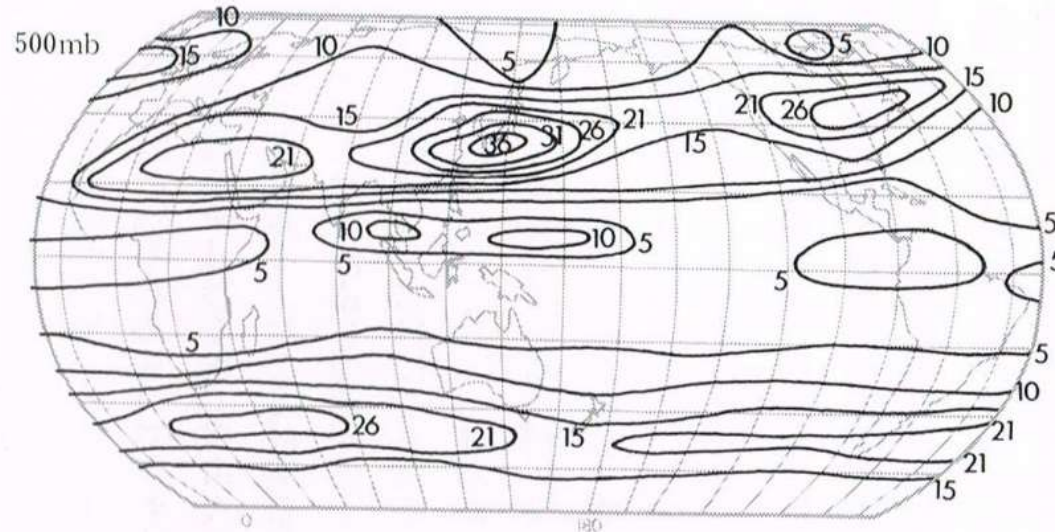 10
500mb
15
10
5
5
10
15
10
15
21
26
21
26
31
36
15
21
10
10
5
5
5
5
5
5
5
5
10
26
21
15
21
21
15
0
180